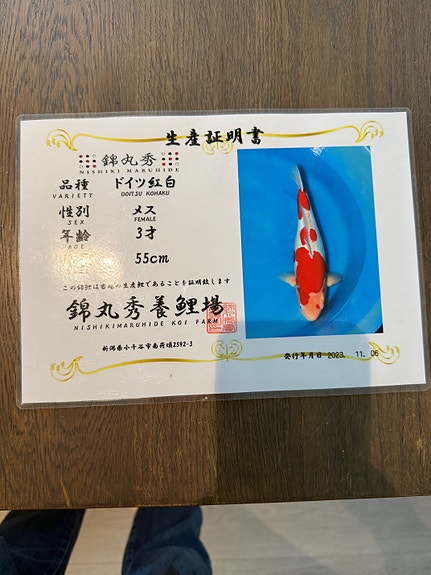 生産証明書
錦丸秀
NISHIKI MARUHIDE
品種 ドイツ紅白
VARIETY DOITSU KOHAKU
性別 メス
SEX FEMALE
年齢 3才
AGE
55cm
この錦鯉は当場の生産鯉であることを証明致します
錦丸秀養鯉場
NISHIKIMARUHIDE KOI FARM
新潟県小千谷市南荷頃2592-3
発行年月日 2023. 11. 06